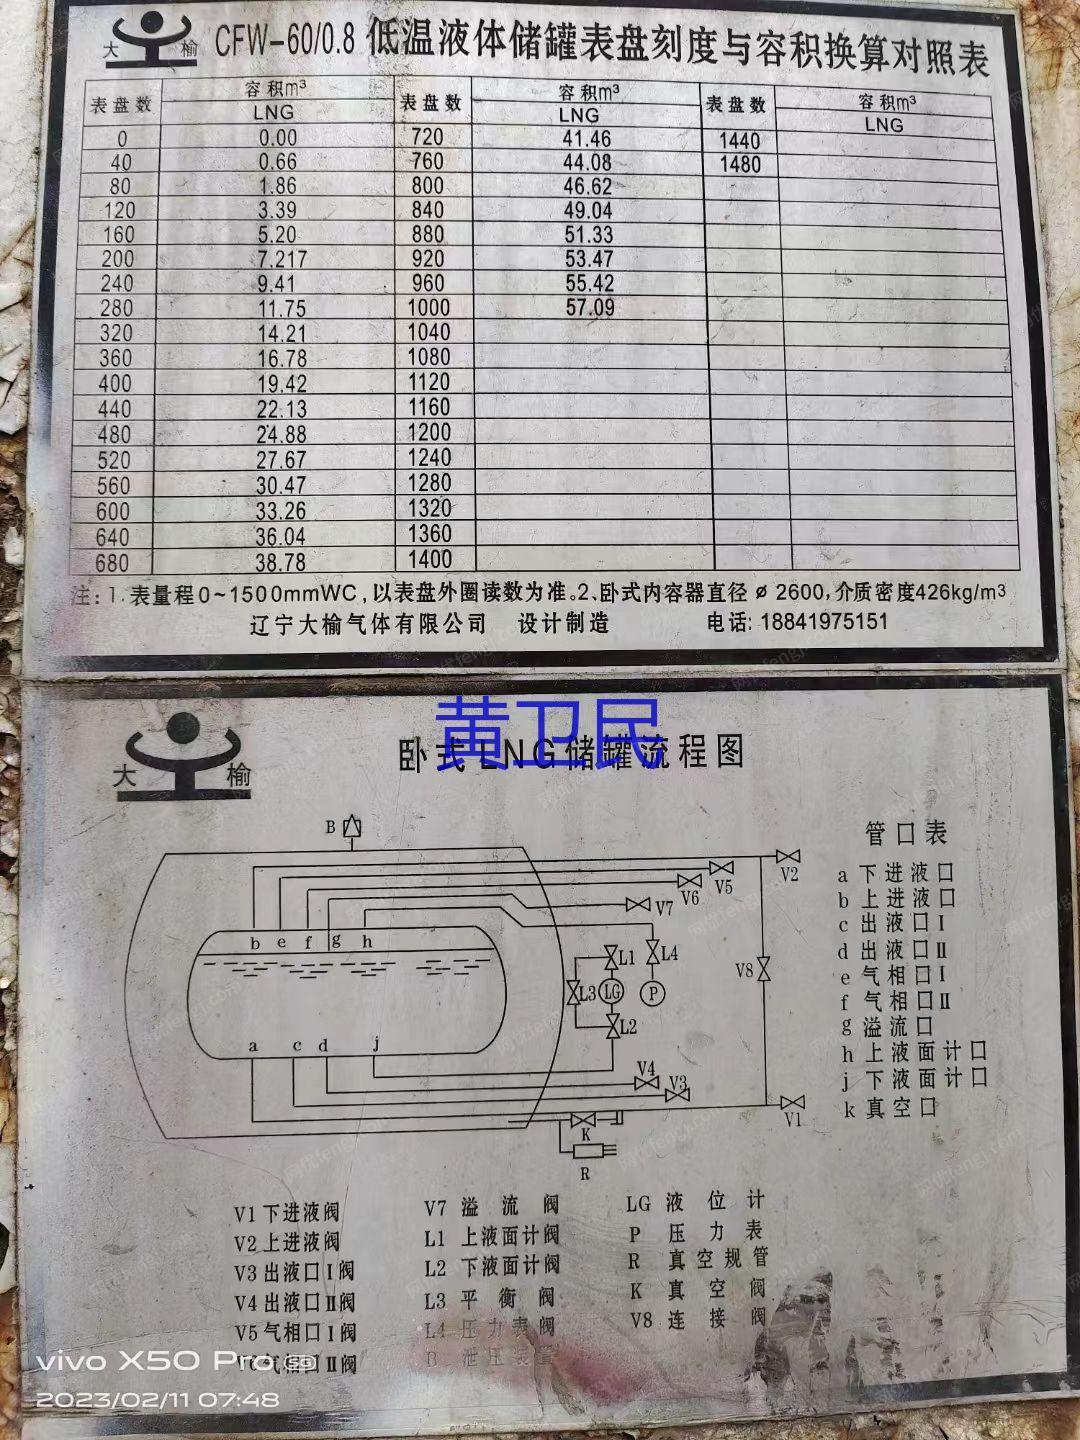 大 榆 CFW-60/0.8 低温液体储罐表盘刻度与容积换算对照表
表盘数 容积m³ 表盘数 容积m³ 表盘数 容积m³
LNG LNG LNG
0 0.00 720 41.46 1440
40 0.66 760 44.08 1480
80 1.86 800 46.62
120 3.39 840 49.04
160 5.20 880 51.33
200 7.217 920 53.47
240 9.41 960 55.42
280 11.75 1000 57.09
320 14.21 1040
360 16.78 1080
400 19.42 1120
440 22.13 1160
480 24.88 1200
520 27.67 1240
560 30.47 1280
600 33.26 1320
640 36.04 1360
680 38.78 1400
注:1、表量程0~1500mmWC,以表盘外圈读数为准。2、卧式内容器直径ø2600,介质密度426kg/m³
辽宁大榆气体有限公司 设计制造 电话:18841975151
黄卫民
大 榆 卧式LNG储罐流程图
B
V2
V5
V6
V7
b e f g h
L1 L4
V8
L3 LG P
L2
a c d j
V4
V3
V1
K
R
管口表
a 下进液口
b 上进液口
c 出液口Ⅰ
d 出液口Ⅱ
e 气相口Ⅰ
f 气相口Ⅱ
g 溢流口
h 上液面计口
j 下液面计口
k 真空口
V1 下进液阀 V7 溢流阀 LG 液位计
V2 上进液阀 L1 上液面计阀 P 压力表
V3 出液口Ⅰ阀 L2 下液面计阀 R 真空规管
V4 出液口Ⅱ阀 L3 平衡阀 K 真空阀
V5 气相口Ⅰ阀 L4 压力表阀 V8 连接阀
V6 气相口Ⅱ阀 B 泄压装置
vivo X50 Pro
2023/02/11 07:48